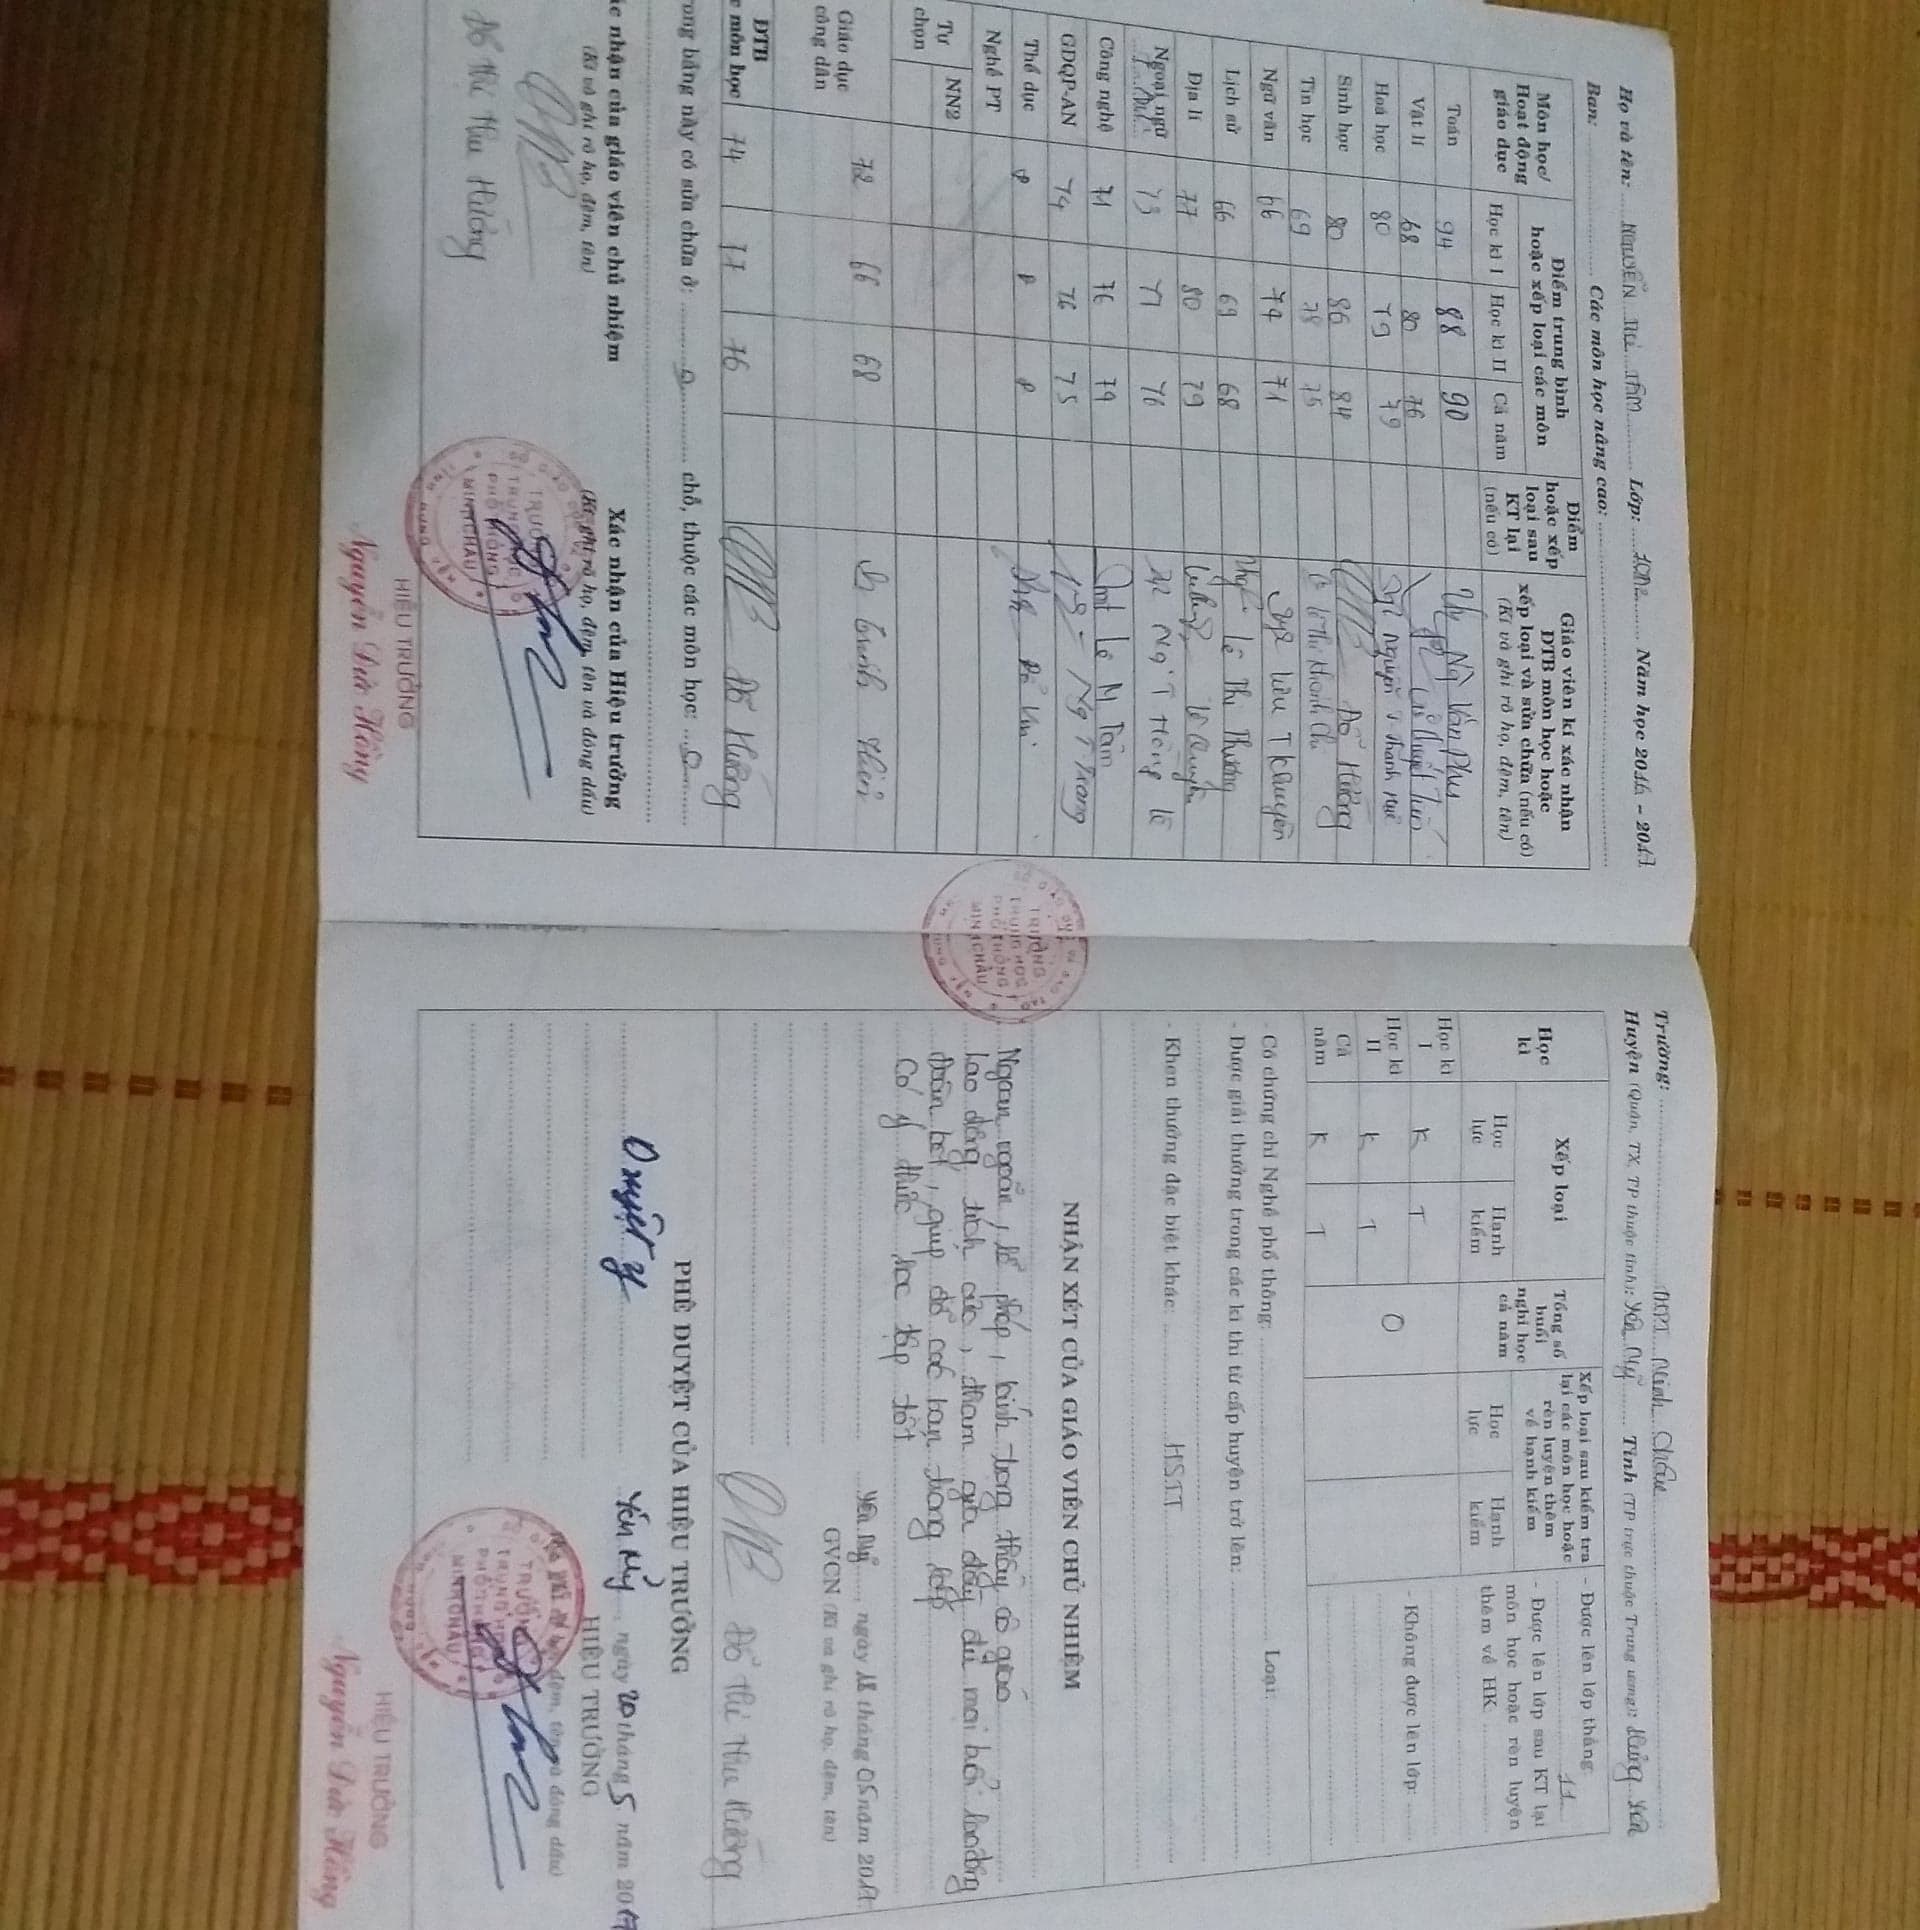 Họ và tên: NGUYỄN THỊ TÂM Lớp: Năm học 2016 - 2017
Ban: Các môn học nâng cao:
Môn học/ Hoạt động giáo dục
Điểm trung bình hoặc xếp loại các môn
Học kì I Học kì II Cả năm
Điểm hoặc xếp loại sau KT lại (nếu có)
Giáo viên kí xác nhận ĐTB môn học hoặc xếp loại và sửa chữa (nếu có)
(Kí và ghi rõ họ, đệm, tên)
Toán 94 88 90 Ng Văn Phú
Vật lí 68 80 76
Hoá học 80 79 79 Nguyễn T Thanh Huê
Sinh học 80 86 84 Đỗ Hường
Tin học 69 78 75
Ngữ văn 66 74 71 Lưu T Khuyên
Lịch sử 66 69 68 Lê Thị Thương
Địa lí 77 80 79
Ngoại ngữ 73 77 76
Công nghệ 71 76 74 Lê M Tâm
GDQP-AN 74 76 75 Ng T Trang
Thể dục Đ Đ Đ
Nghề PT
Tự chọn NN2
Giáo dục công dân 72 66 68
ĐTB các môn học 74 77 76 Đỗ Hường
Trong bảng này có sửa chữa ở: 0 chỗ, thuộc các môn học: 0
Xác nhận của giáo viên chủ nhiệm
(Kí và ghi rõ họ, đệm, tên)
Đỗ Thị Thu Hường
Xác nhận của Hiệu trưởng
(Kí, ghi rõ họ, đệm, tên và đóng dấu)
TRƯỜNG
TRUNG HỌC
PHỔ THÔNG
MINH CHÂU
HIỆU TRƯỞNG
Nguyễn Đức Hồng
TRƯỜNG
TRUNG HỌC
PHỔ THÔNG
MINH CHÂU
Trường: THPT Minh Châu
Huyện (Quận, TX, TP thuộc tỉnh): Yên Mỹ Tỉnh (TP trực thuộc Trung ương): Hưng Yên
Học kì
Xếp loại
Học lực Hạnh kiểm
Tổng số buổi nghỉ học cả năm
Xếp loại sau kiểm tra lại các môn học hoặc rèn luyện thêm về hạnh kiểm
Học lực Hạnh kiểm
- Được lên lớp thẳng: 11
- Được lên lớp sau KT lại môn học hoặc rèn luyện thêm về HK
- Không được lên lớp:
Học kì I K T
Học kì II K T 0
Cả năm K T
- Có chứng chỉ Nghề phổ thông: Loại:
- Được giải thưởng trong các kì thi từ cấp huyện trở lên:
- Khen thưởng đặc biệt khác: HSTT
NHẬN XÉT CỦA GIÁO VIÊN CHỦ NHIỆM
Ngoan ngoãn, lễ phép, kính trọng thầy cô giáo
lao động tích cực, tham gia đầy đủ mọi buổi lao động
đoàn kết, giúp đỡ các bạn trong lớp
Có ý thức học tập tốt
Yên Mỹ, ngày 18 tháng 05 năm 2017
GVCN (Kí và ghi rõ họ, đệm, tên)
Đỗ Thị Thu Hường
PHÊ DUYỆT CỦA HIỆU TRƯỞNG
Duyệt y
Yên Mỹ, ngày 20 tháng 5 năm 2017
HIỆU TRƯỞNG
TRƯỜNG
TRUNG HỌC
PHỔ THÔNG
MINH CHÂU
HIỆU TRƯỞNG
Nguyễn Đức Hồng